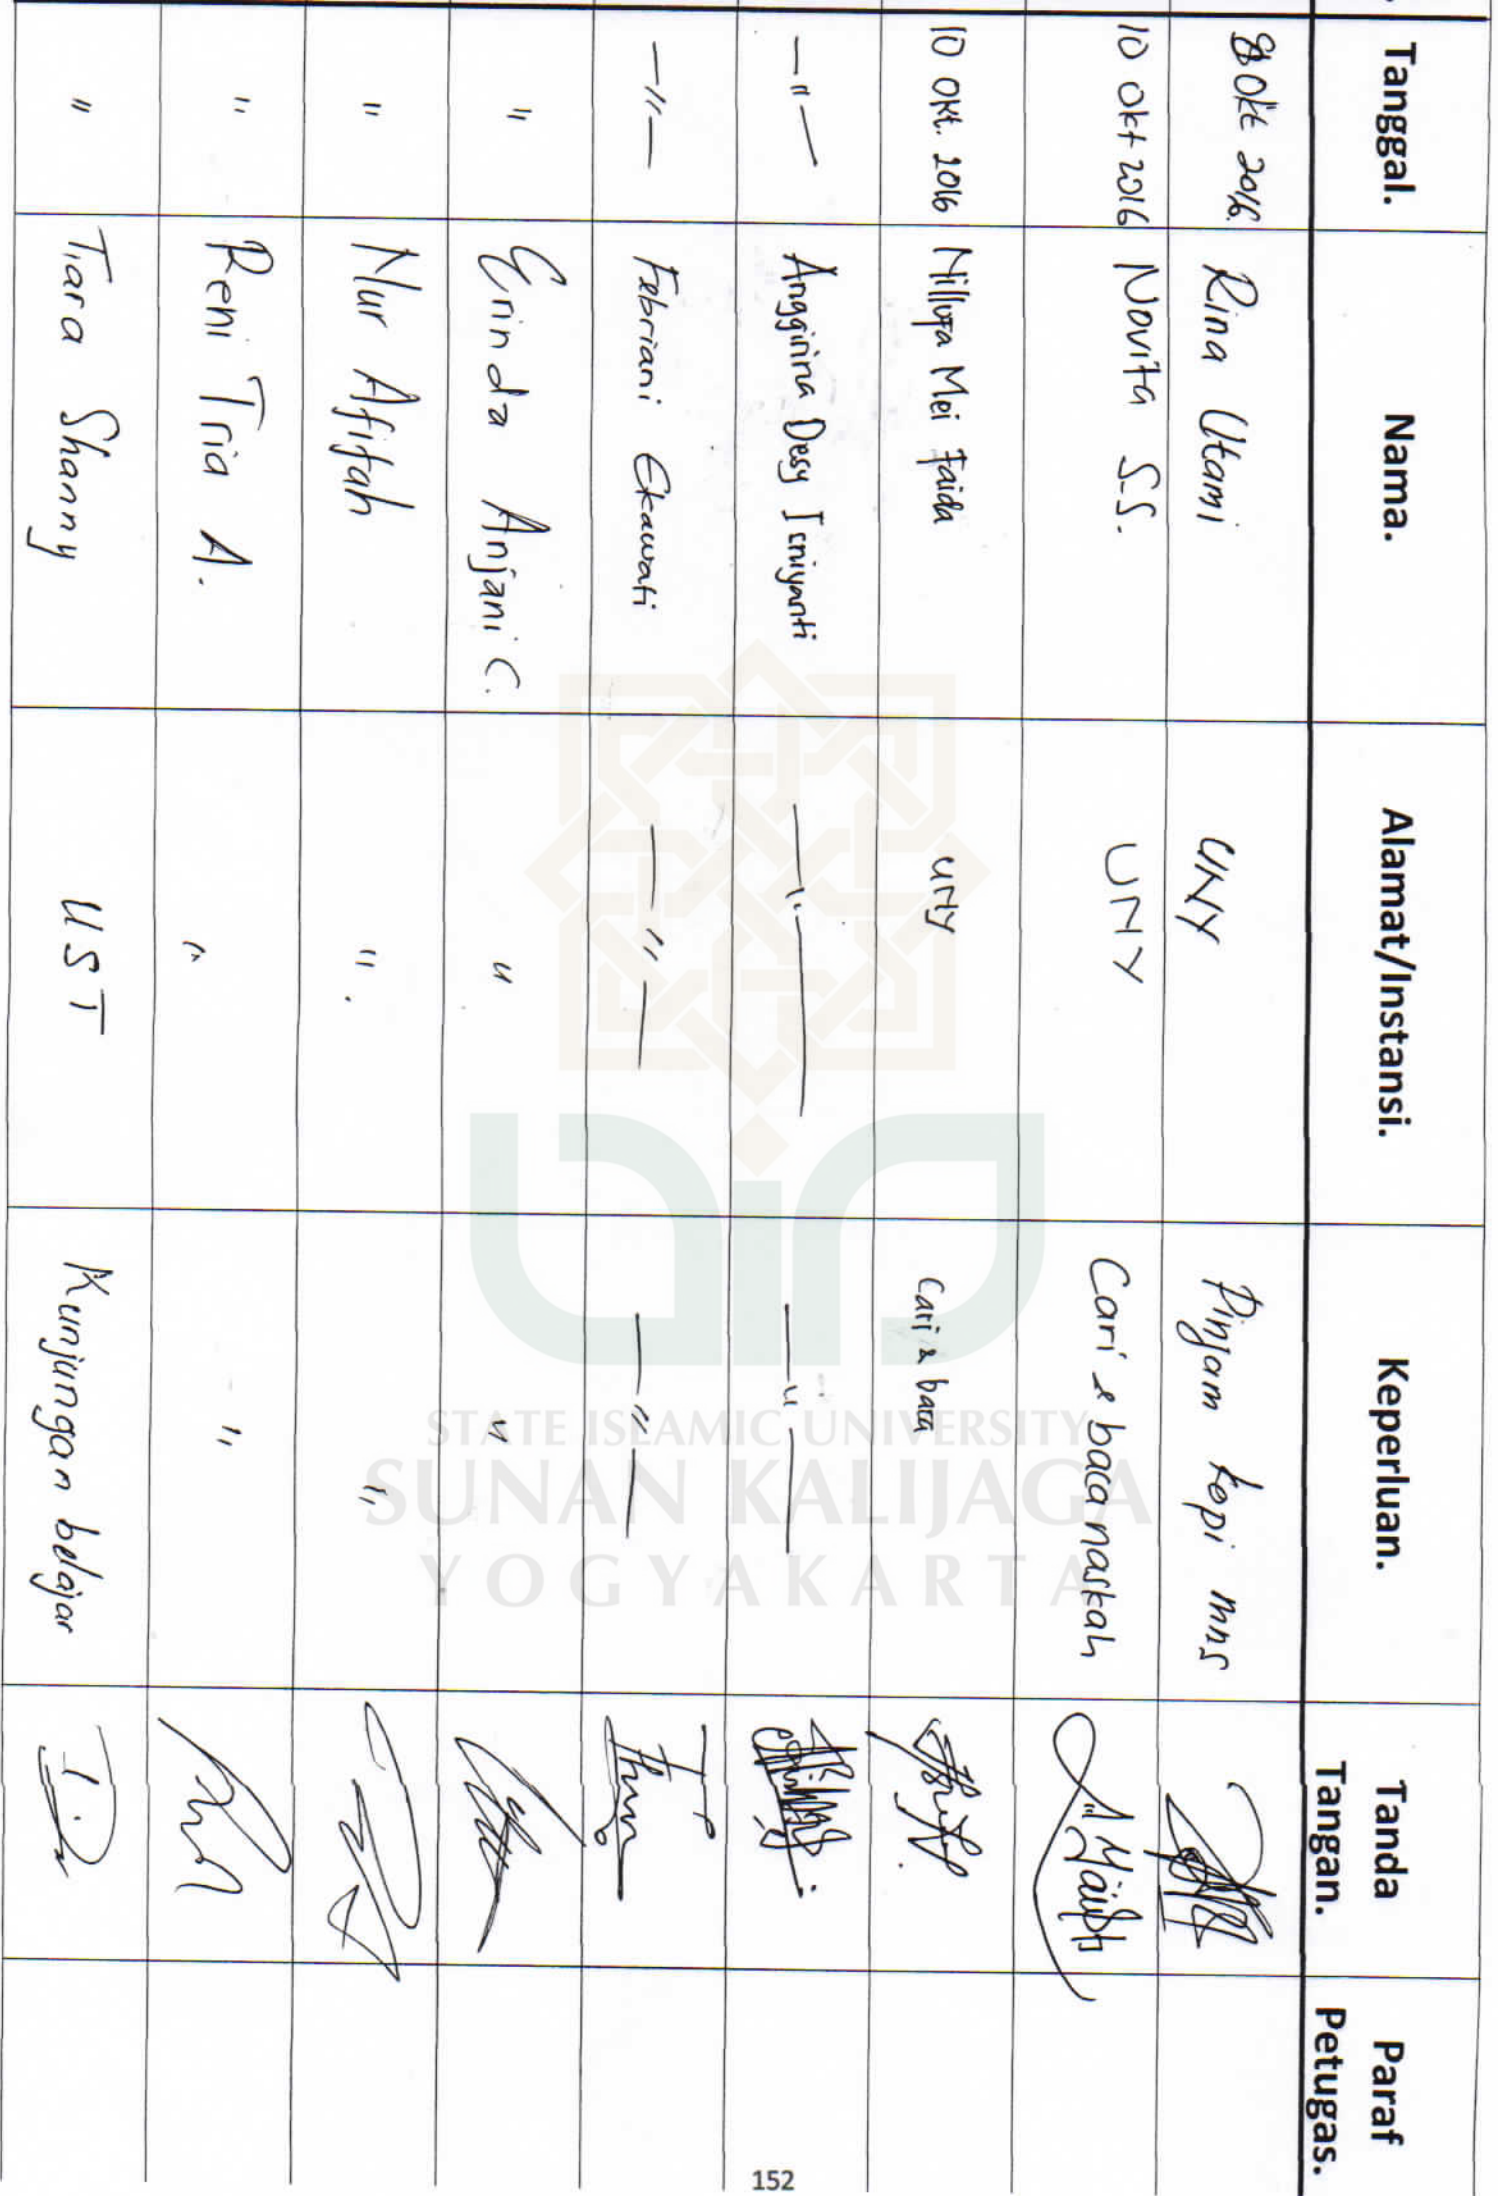 Tanggal. Nama. Alamat/Instansi. Keperluan. Tanda Tangan. Paraf Petugas.
Okt 2016. Rina Utami UNY Pinjam kopi mns
10 Okt 2016 Novita S.S. UNY Cari & baca naskah
10 Okt. 2016 Mei Faida UNY Cari & baca
—"— Anggirina Desy Isniyanti —"— —"—
—"— Febriani Ekawati —"— —"—
" Erinda Anjani C. " "
" Nur Afifah ". "
" Reni Tria A. " "
" Tiara Shanny UST Kunjungan belajar
STATE ISLAMIC UNIVERSITY
SUNAN KALIJAGA
YOGYAKARTA
152